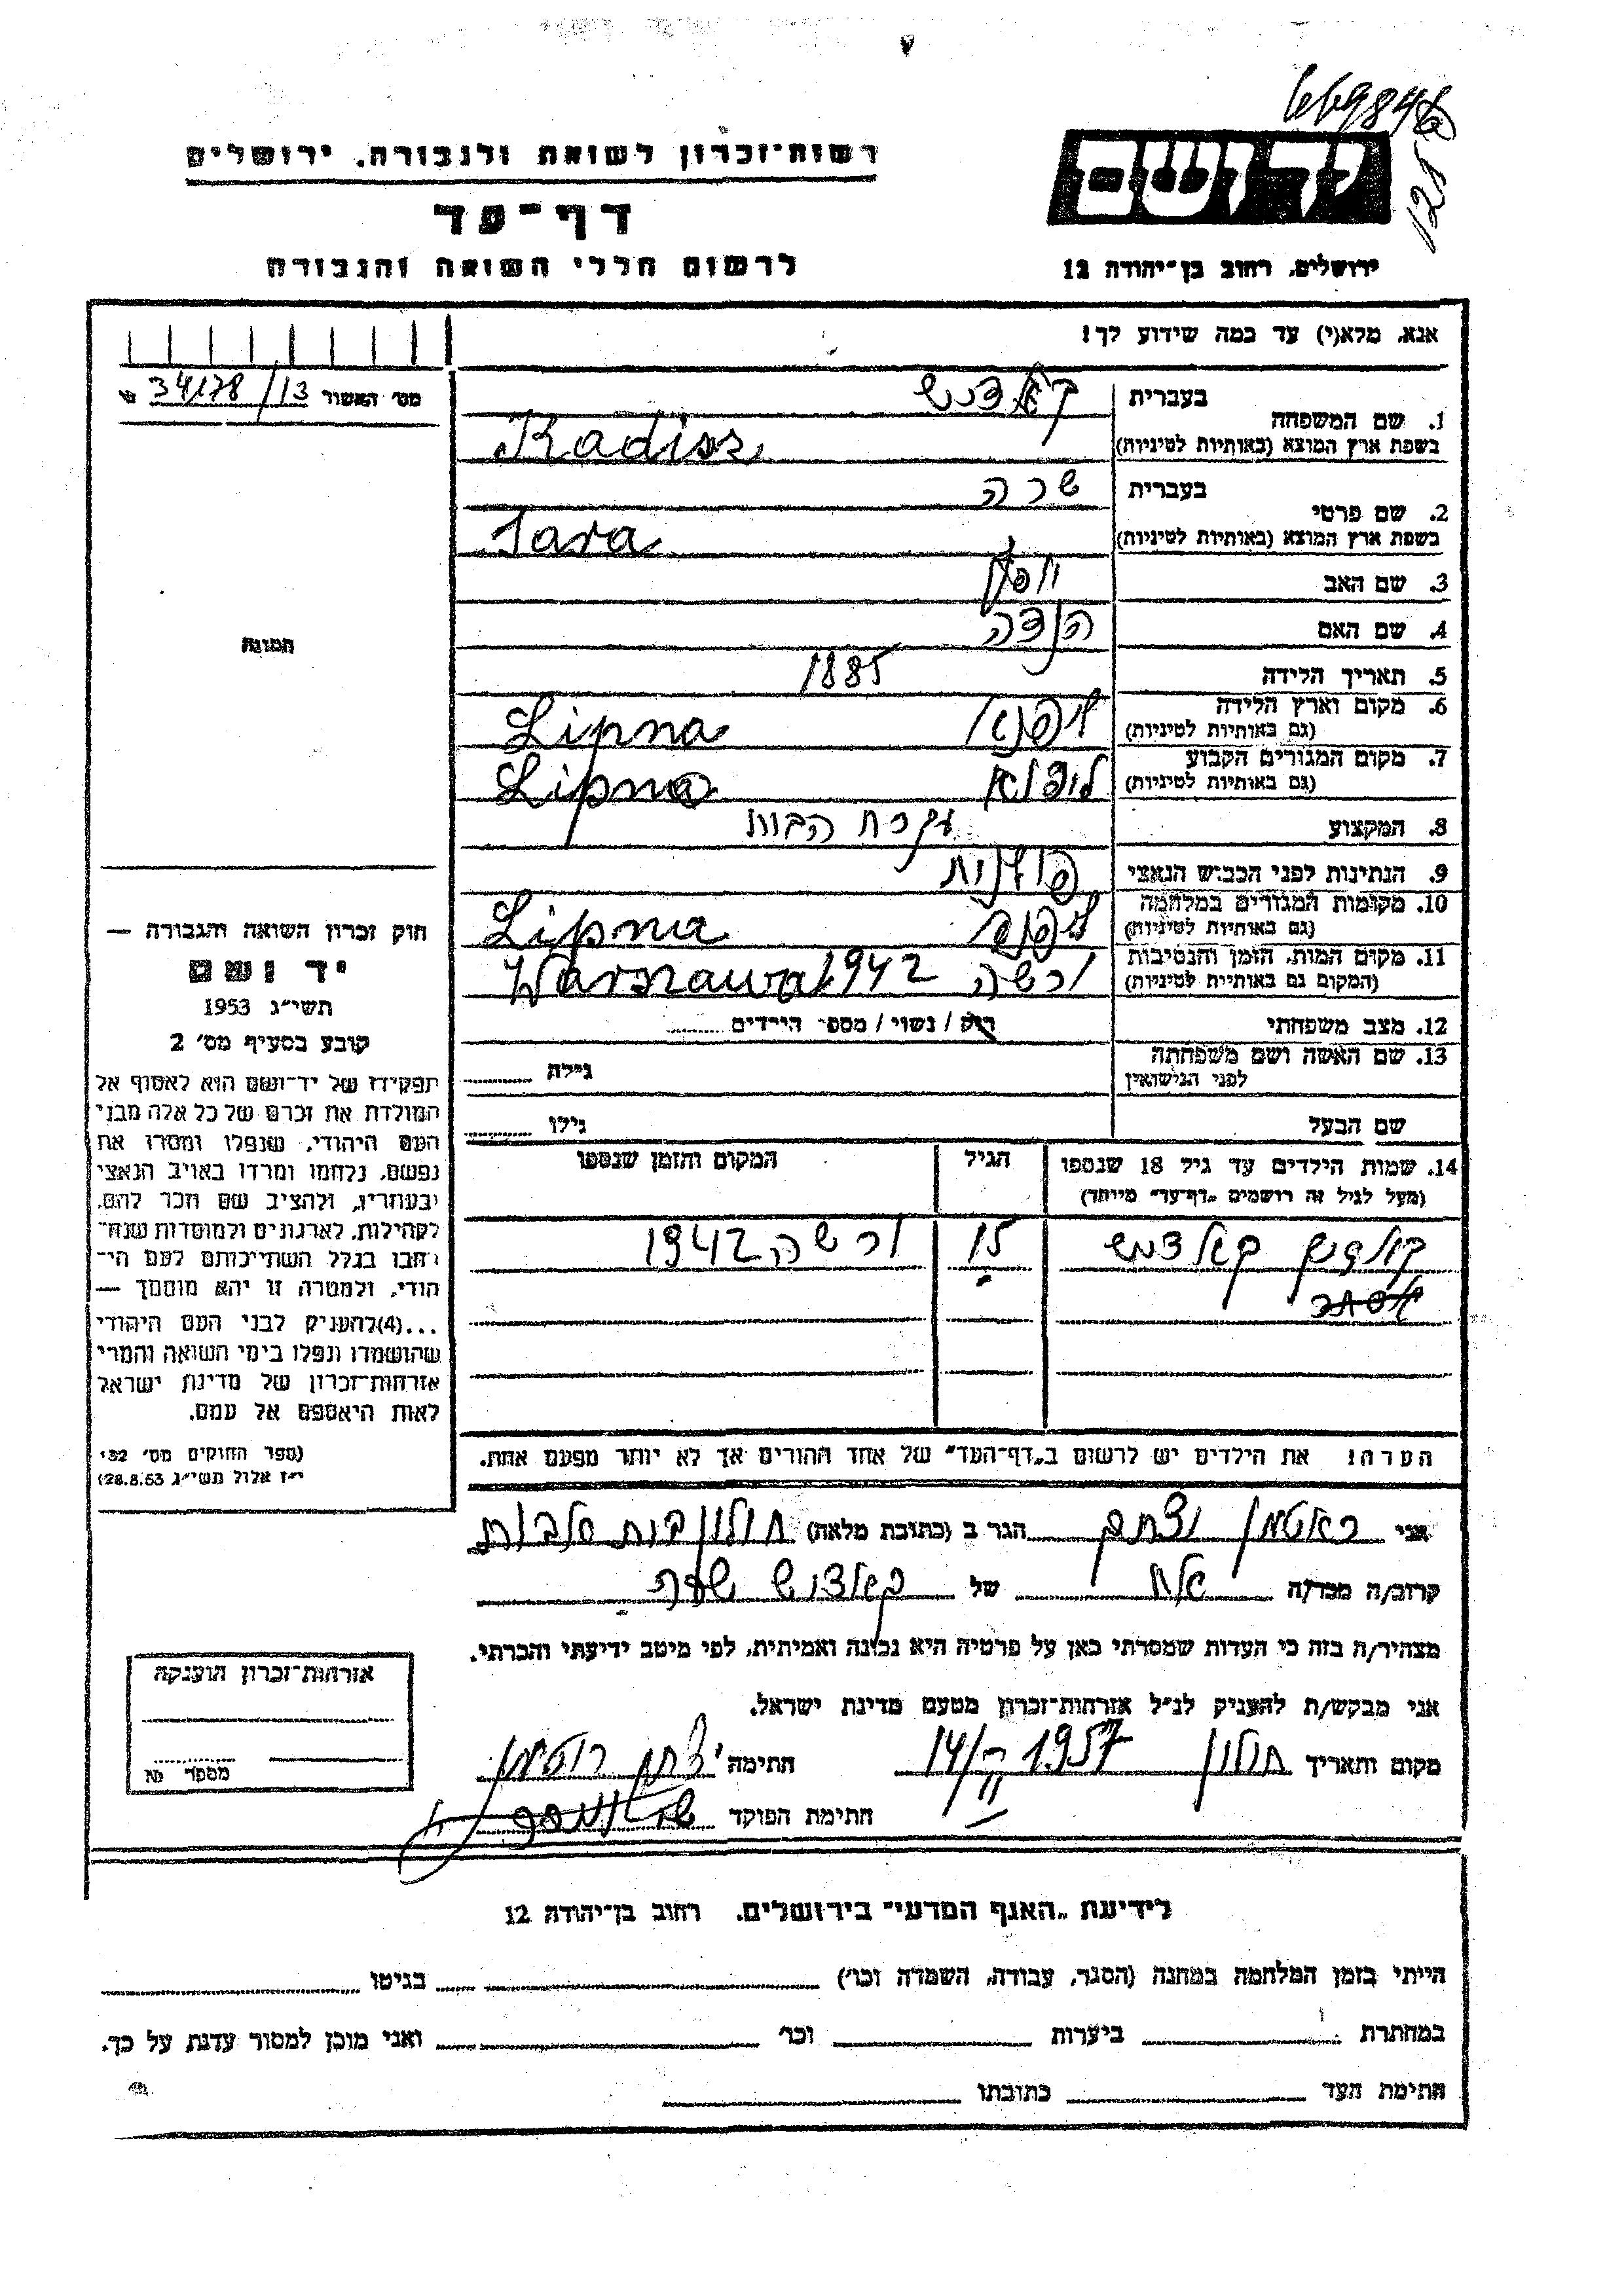 669846
125
רשות-זכרון לשואה ולגבורה, ירושלים
דף-עד
לרשום חללי השואה והגבורה
יד ושם
ירושלים, רחוב בן-יהודה 12
אנא, מלא(י) עד כמה שידוע לך!
מס׳ האשור 34178/13
1. שם המשפחה בעברית קאדיש
בשפת ארץ המוצא (באותיות לטיניות) Kadisz
2. שם פרטי בעברית שרה
בשפת ארץ המוצא (באותיות לטיניות) Sara
3. שם האב
4. שם האם הינדה
5. תאריך הלידה 1885
6. מקום וארץ הלידה (גם באותיות לטיניות) Lipna
7. מקום המגורים הקבוע (גם באותיות לטיניות) ליפנא Lipna
8. המקצוע עקרת הבית
9. הנתינות לפני הכבוש הנאצי פולנית
10. מקומות המגורים במלחמה (גם באותיות לטיניות) Lipna
11. מקום המות, הזמן והנסיבות (המקום גם באותיות לטיניות) ורשה 1942 Warszawa
12. מצב משפחתי רוק / נשוי / מספר הילדים
13. שם האשה ושם משפחתה לפני הנישואין גילה
שם הבעל גילו
14. שמות הילדים עד גיל 18 שנספו
(מעל לגיל זה רושמים „דף-עד" מיוחד)
הגיל
המקום והזמן שנספו
קאדיש 15 ורשה 1942
הערה: את הילדים יש לרשום ב„דף-העד" של אחד ההורים אך לא יותר מפעם אחת.
התמונה
חוק זכרון השואה והגבורה —
יד ושם
תשי״ג 1953
קובע בסעיף מס׳ 2
תפקידו של יד-ושם הוא לאסוף אל
המולדת את זכרם של כל אלה מבני
העם היהודי, שנפלו ומסרו את
נפשם, נלחמו ומרדו באויב הנאצי
ובעוזריו, ולהציב שם וזכר להם,
לקהילות, לארגונים ולמוסדות שנח-
רבו בגלל השתייכותם לעם הי-
הודי, ולמטרה זו יהא מוסמך —
...(4)להעניק לבני העם היהודי
שהושמדו ונפלו בימי השואה והמרי
אזרחות-זכרון של מדינת ישראל
לאות היאספם אל עמם.
(ספר החוקים מס׳ 132
י״ז אלול תשי״ג 28.8.53)
אני יצחק הגר ב (כתובת מלאה) חולון
קרוב/ה מכר/ה אח של קאדיש שרה
מצהיר/ה בזה כי העדות שמסרתי כאן על פרטיה היא נכונה ואמיתית, לפי מיטב ידיעתי והכרתי.
אני מבקש/ת להעניק לנ״ל אזרחות-זכרון מטעם מדינת ישראל.
מקום ותאריך חולון 14/ 1957 חתימה יצחק
חתימת הפוקד
אזרחות-זכרון הוענקה
מספר №
לידיעת „האגף המדעי" בירושלים, רחוב בן-יהודה 12
הייתי בזמן המלחמה במחנה (הסגר, עבודה, השמדה וכו׳) בגיטו
במחתרת ביערות וכו׳ ואני מוכן למסור עדות על כך.
חתימת העד כתובתו